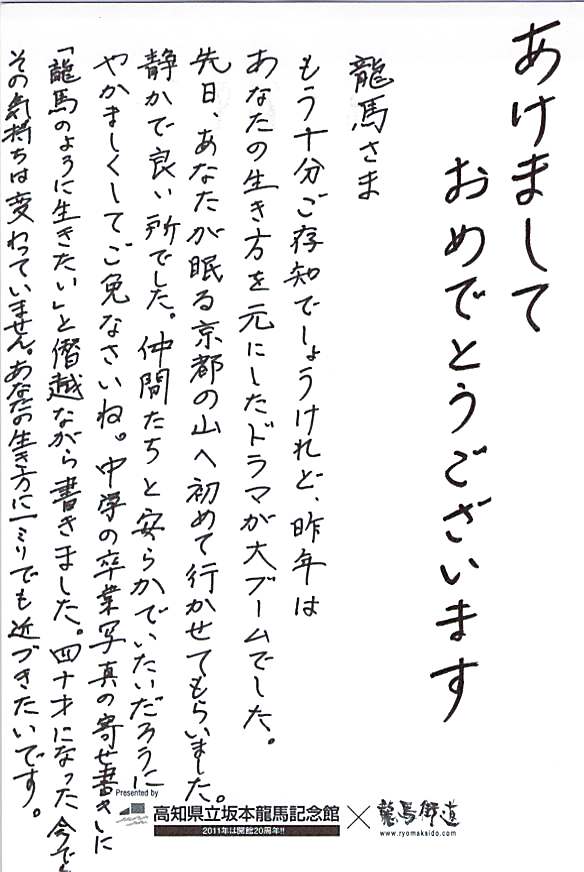 あけまして
おめでとうございます
龍馬さま
もう十分ご存知でしょうけれど、昨年は
あなたの生き方を元にしたドラマが大ブームでした。
先日、あなたが眠る京都の山へ初めて行かせてもらいました。
静かで良い所でした。仲間たちと安らかでいたいだろうに
やかましくしてご免なさいね。中学の卒業写真の寄せ書きに
「龍馬のように生きたい」と僭越ながら書きました。四十才になった今でも
その気持ちは変わっていません。あなたの生き方に一ミリでも近づきたいです。
Presented by
高知県立坂本龍馬記念館 × 龍馬街道
2011年は開館20周年!!
www.ryomakaido.com